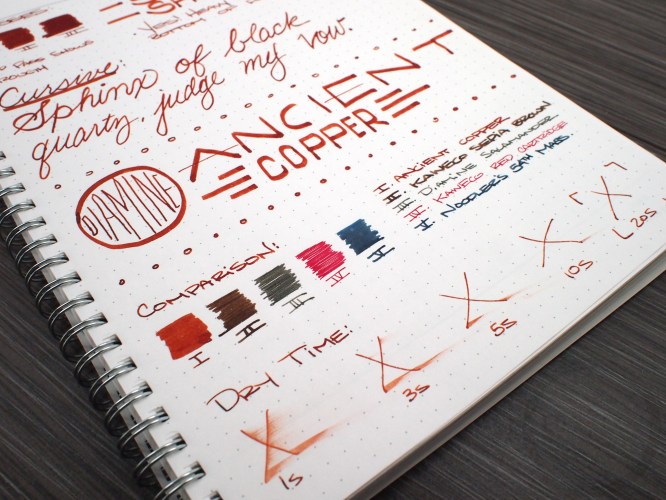 Cursive:
Sphinx of black
quartz, judge my vow.
DIAMINE
ANCIENT
COPPER
I: ANCIENT COPPER
II: KAWECO SEPIA BROWN
III: DIAMINE SALAMANDER
IV: KAWECO RED CARTRIDGE
V: NOODLER'S 54TH MASS.
COMPARISON:
I
II
III
IV
V
DRY TIME:
X
1S
X
3S
X
5S
X
10S
X
20S